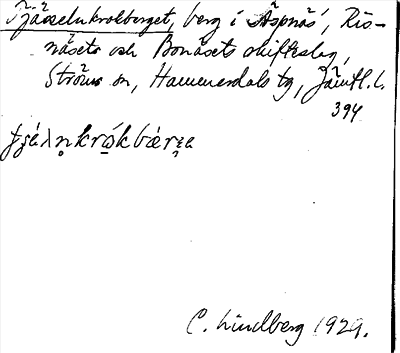 Tjädelnkrokberget, berg i Äspnäs, Ris-
näsets och Bonäsets skifteslag,
Ströms sn, Hammerdals tg, Jämtl. l.
394
C. Lindberg 1929.